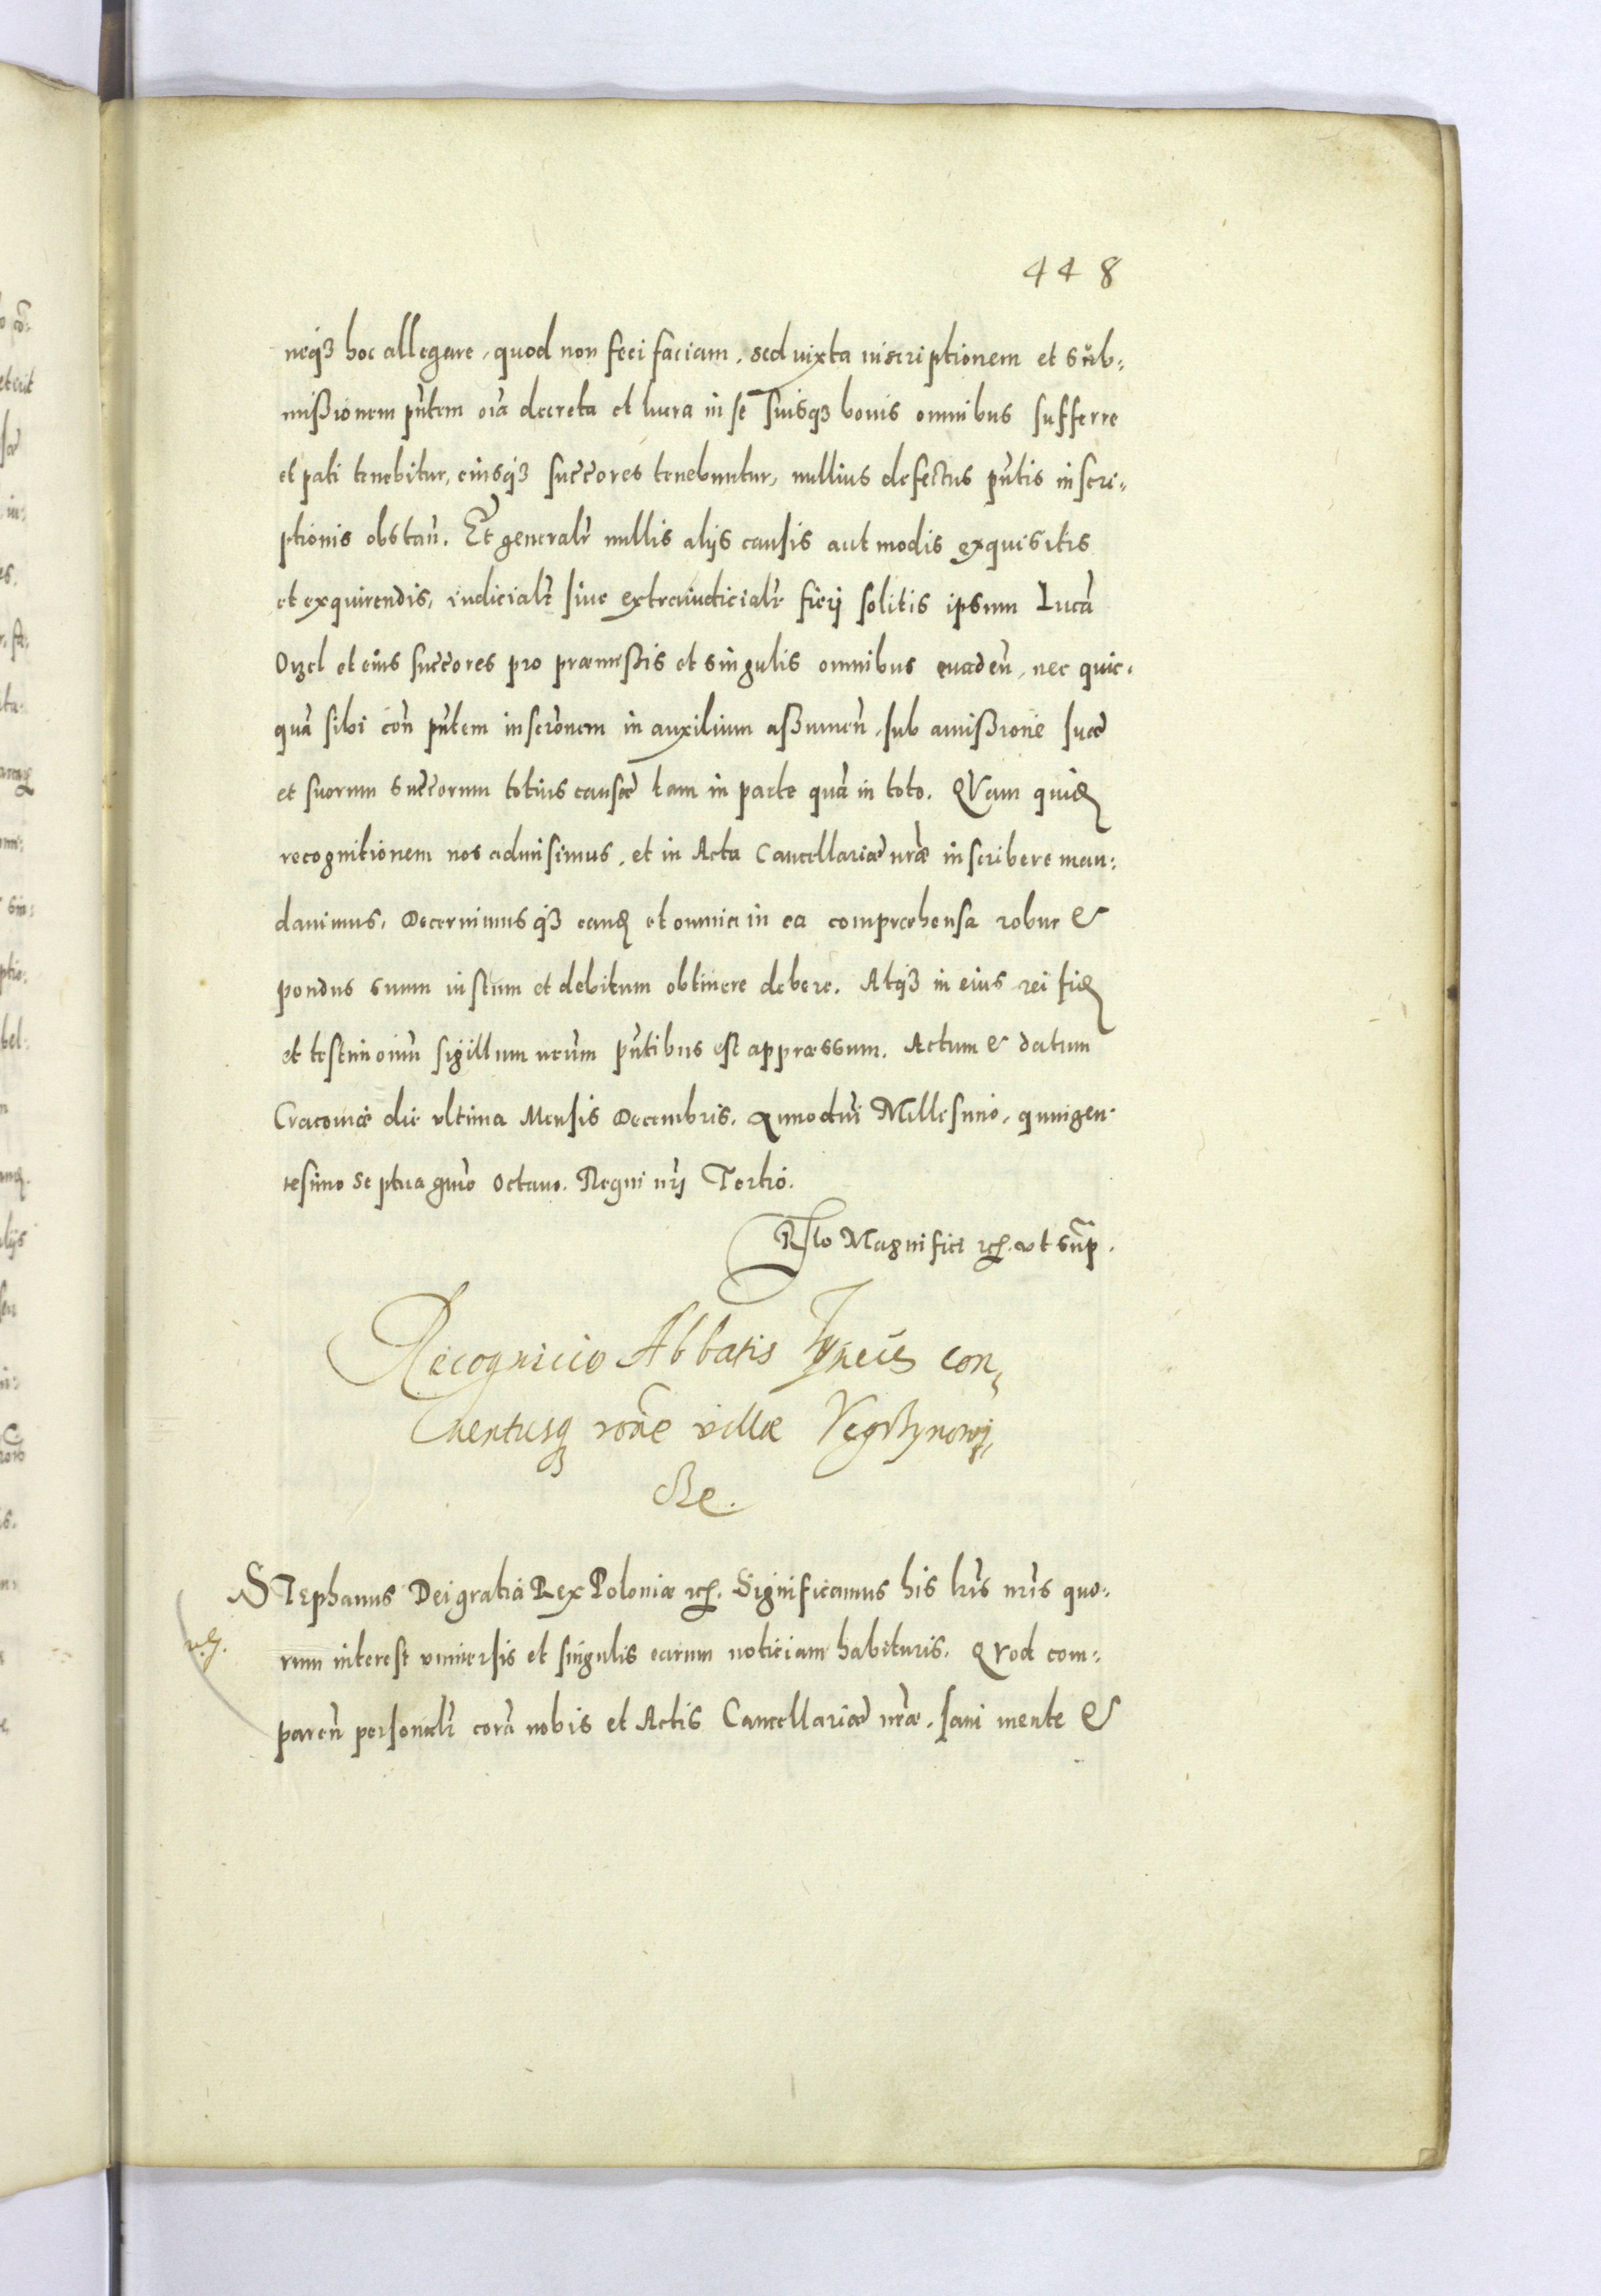 448
neq3 hoc allegare, quod non feci faciam, sed iuxta inscriptionem et sub:
missionem pñtem oĩa decreta et lucra in se suisq3 bonis omnibus sufferre
et pati tenebitur, eiusq3 succores tenebuntur, nullius defectus pñtis inscri:
ptionis obstañ. Et generalr̃ nullis alijs causis aut modis exquisitis
et exquirendis, iudicialr̃ siue extraiudicialr̃ fieri solitis ipsum Lucã
Orzel et eius succores pro præmissis et singulis omnibus euadeñ, nec quic:
quã sibi coñ pñtem inscrõnem in auxilium assumeñ, sub amissione suæ
et suorum succorum totius causæ tam in parte quã in toto. QVam quidẽ
recognitionem nos admisimus, et in Acta Cancellariæ nr̃æ inscribere man:
dauimus, Decernimusq3 eandẽ et omnia in ea compræhensa robur &
pondus suum iustum et debitum obtinere debere. Atq3 in eius rei fidẽ
et testimoniũ sigillum nr̃um pñtibus est appræssum. Actum & datum
Cracouiæ die vltima Mensis Decembris. Anno dñi Millesimo, quingen:
tesimo Septuagmo octauo. Regni nr̃j Tertio.
Relo Magnifici etc. vt sup.
Recognicio Abbatis Tyneceñ con„
uentusq3 rõne villæ
Stephanus Dei gratia Rex Poloniæ etc. Significamus his lr̃is nr̃is quo:
rum interest vniuersis et singulis earum noticiam habituris. QVod com:
pareñ personalr̃ corã nobis et Actis Cancellariæ nr̃æ, sani mente &